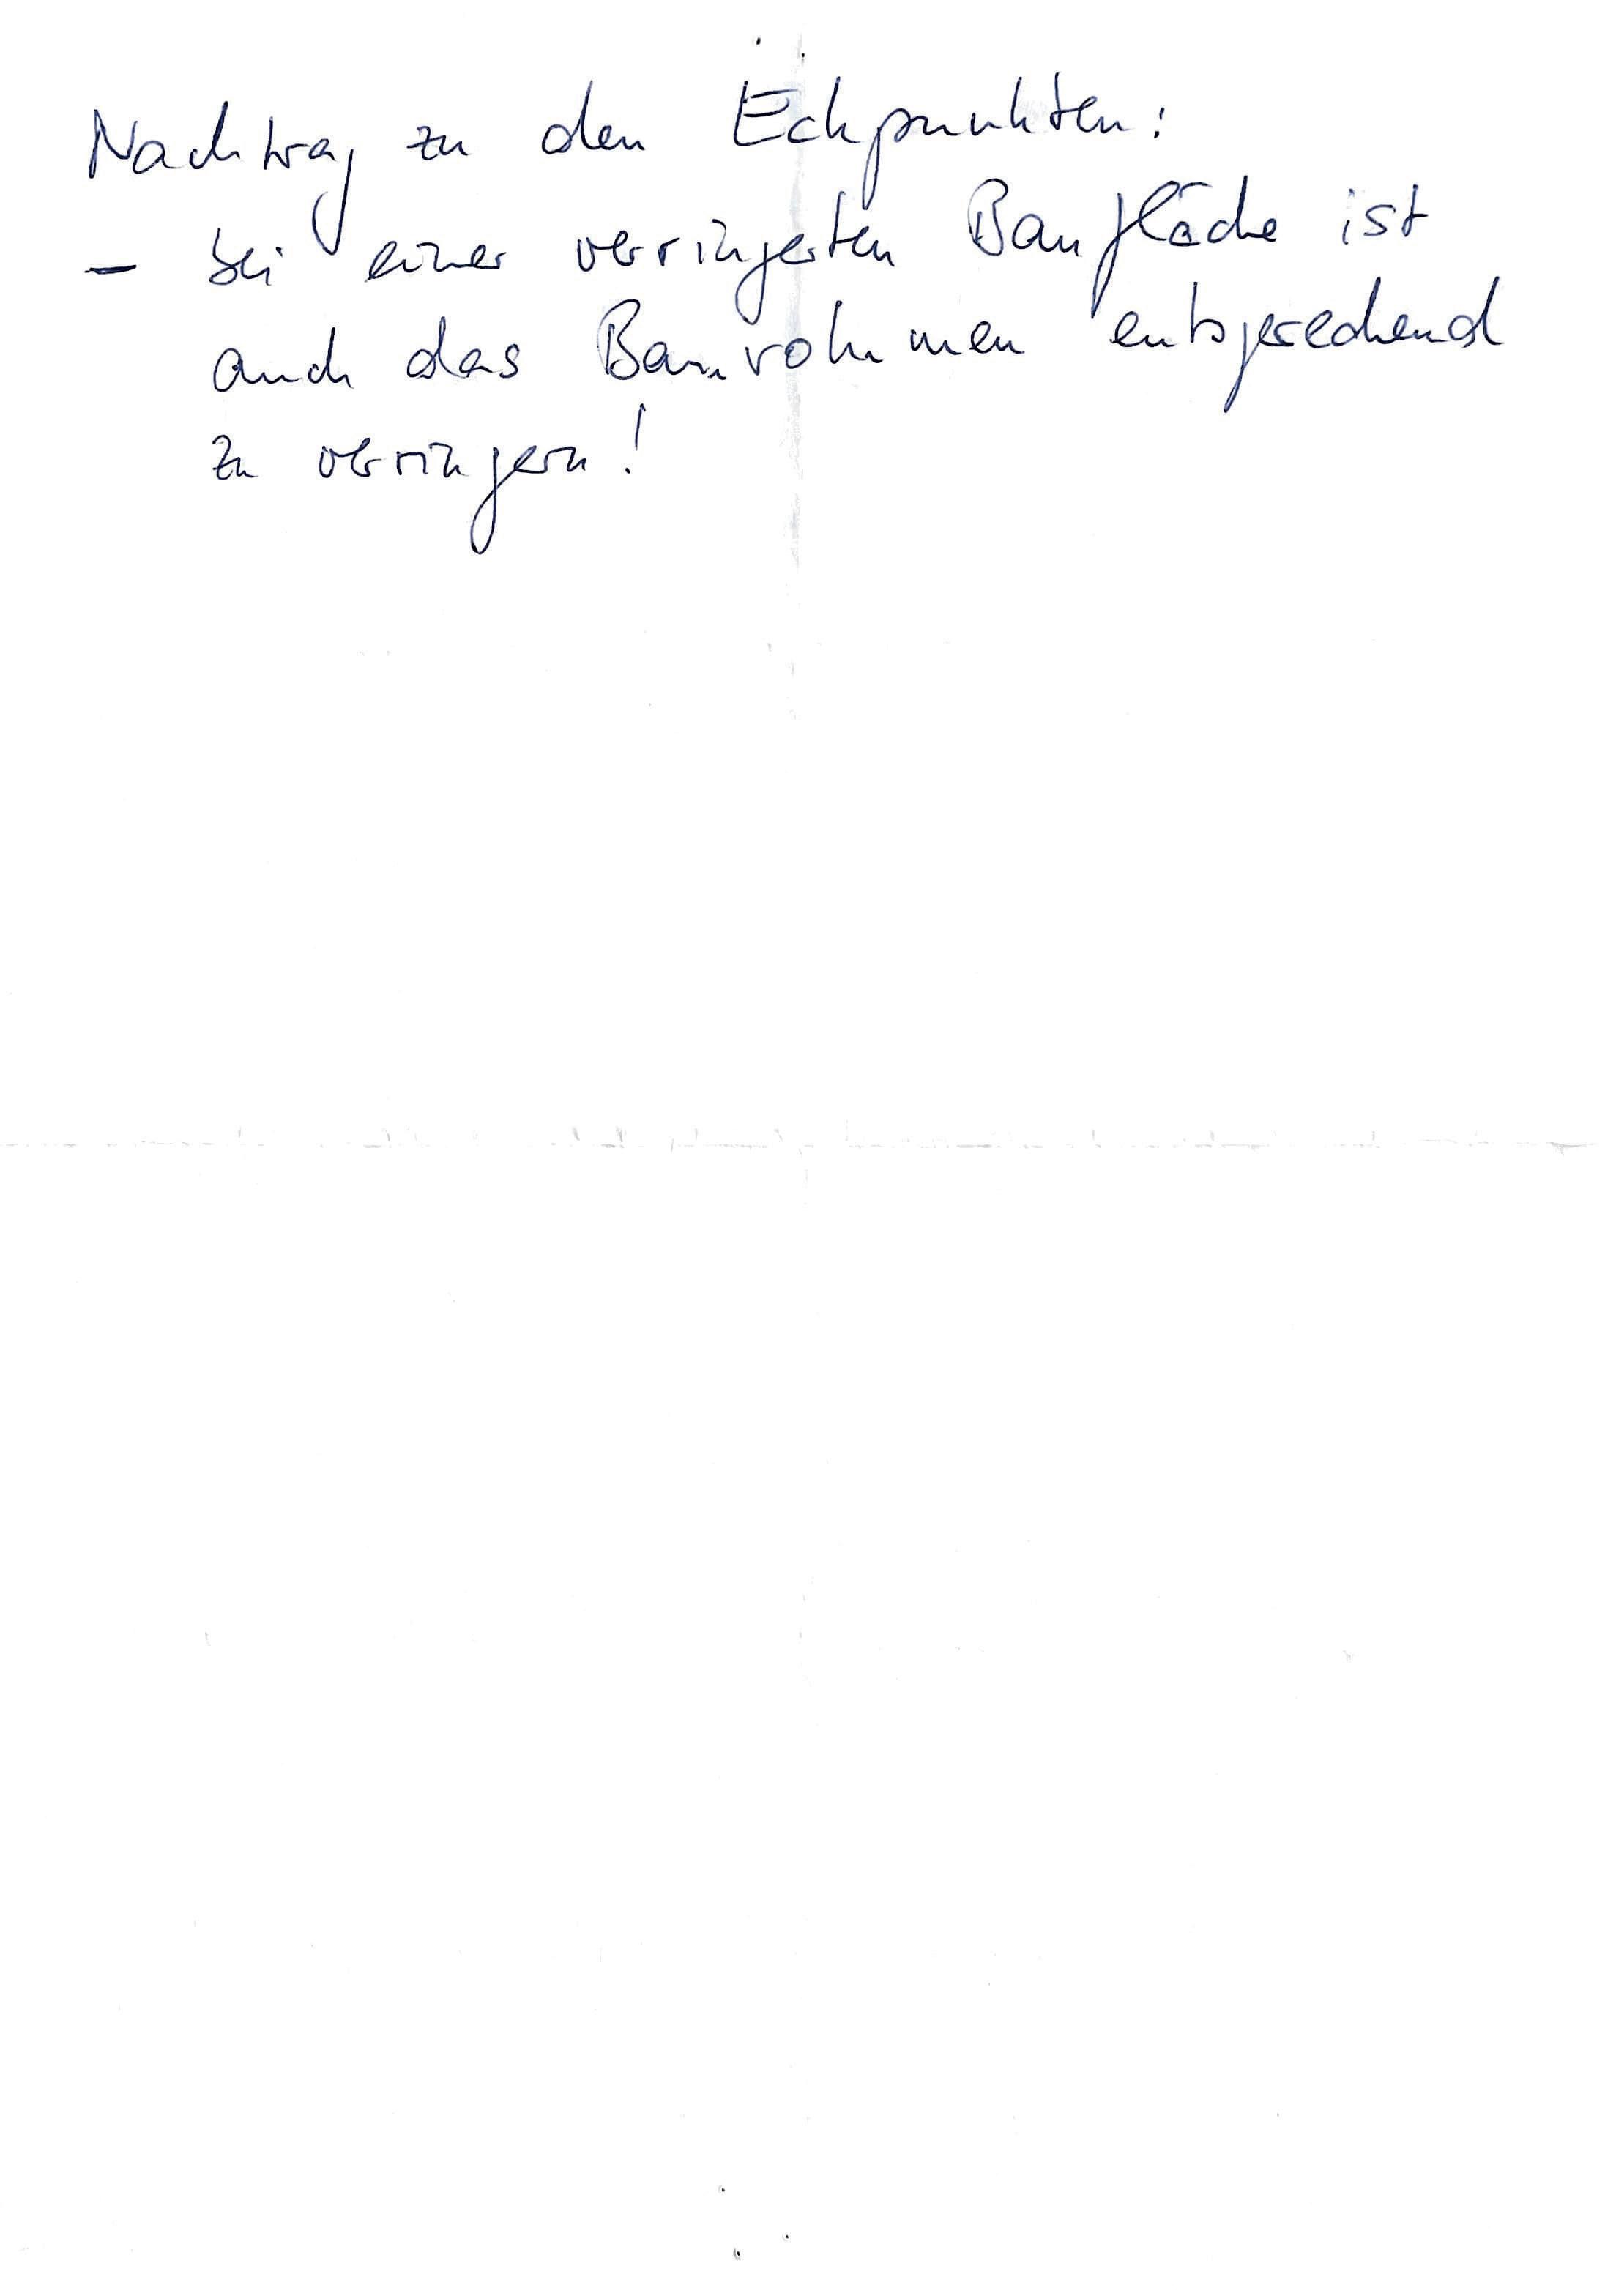 Nachtrag zu den Eckpunkten:
- bei einer verringerten Baufläche ist
auch das Bauvolumen entsprechend
zu verringern!